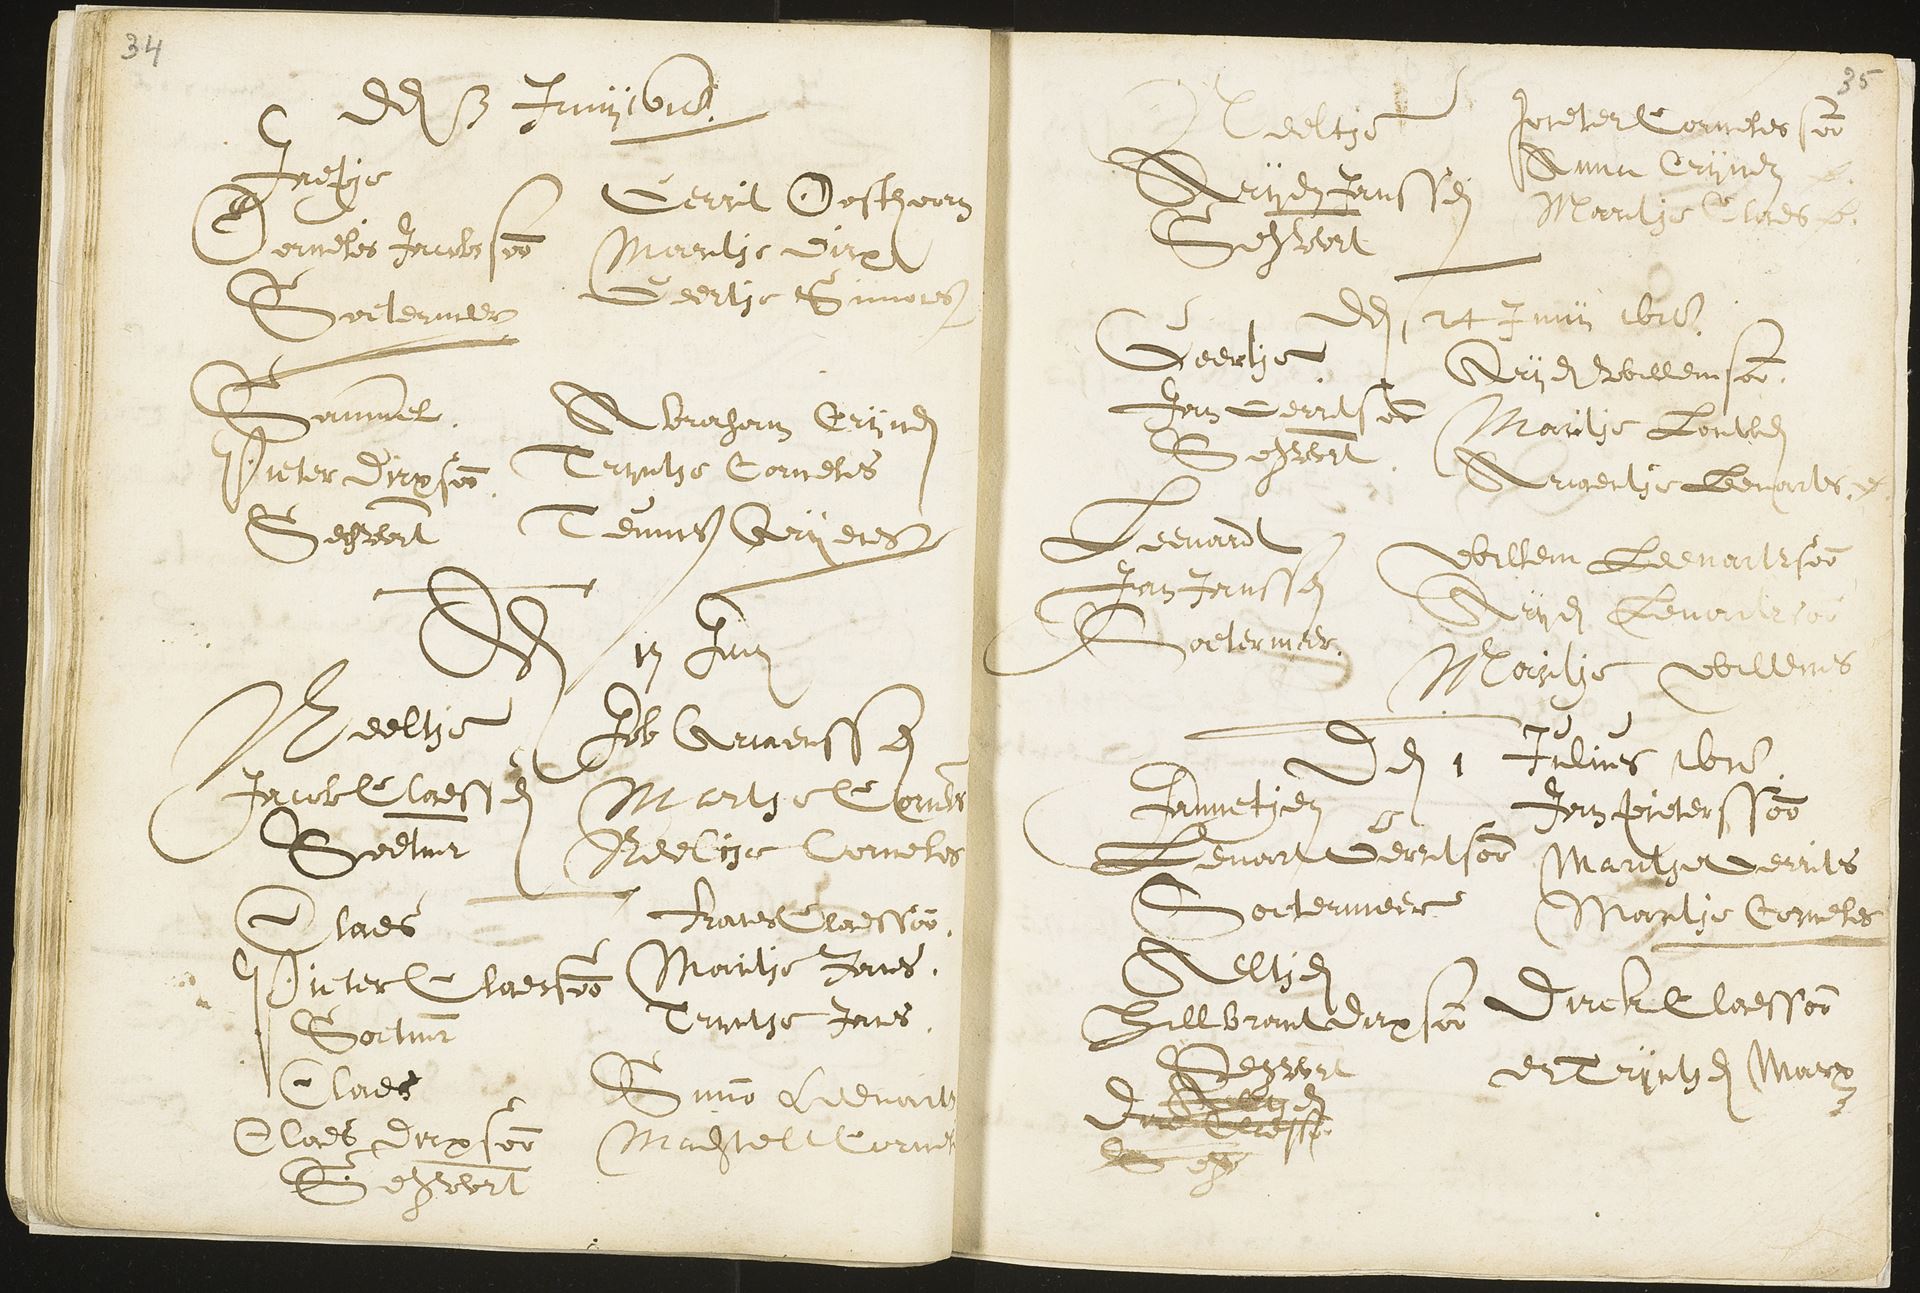 34
Den 3 Junij
Jaepje
Cornelis Jacobssoo
Soetermeer
Gerrit Oosthoorn
Maritje Dirx
Geertje Simons
Sammel
Pieter Dirxsoo
Seghwert
Abraham Crijnen
Trijntje Cornelis
Teunis Arijens
Den 17 Junij
Neeltje
Jacob Claessen
Soetmr
Job Ariaenssen
Maritje Cornelis
Neeltje Cornelis
Claes
Pieter Claessoo
Soetmr
Frans Claessoo.
Maritje Jans.
Trijntje Jans.
Claes
Claes Dirxsoo
Seghwert
Simo Leenarts
Machtelt Corne
35
Neeltje
Arijen Janssen
Seghwert
Pieter Cornelis soo
Anna Crijnen
Maritje Claes
Den 24 Junij
Geertje
Jan Gerritsoo
Seghwert.
Arijen Willemsoo.
Maritje Louwen
Ariaentje Leenarts.
Leenardt
Jan Janssen
Soetermeer.
Willem Leenartsoo
Arijen Lenartsoo
Maritje Willems
Den 1 Julius
Jannetjen
Lenart Gerritsoo
Soetermeer
Jan Pieterssoo
Maritje Gerrits
Maritje Cornelis
Aeltjen
Hillbrant Dirxsoo
Seghwert
Dirck Claessoo
en Trijntjen Marx